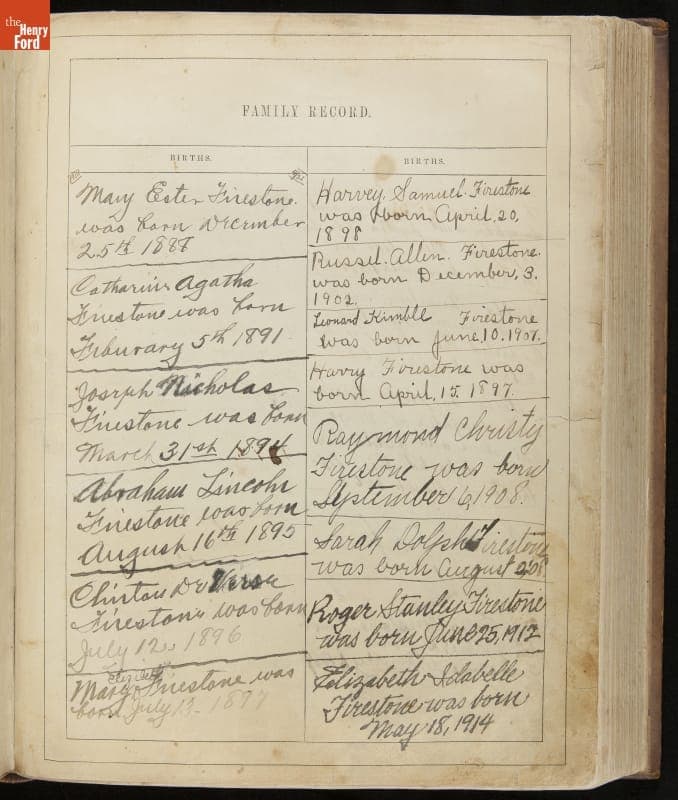 the
Henry
Ford
FAMILY RECORD.
BIRTHS.
Mary Ester Firestone.
was born December
25th 1887
Catharine Agatha
Firestone was born
Feburary 5th 1891
Joseph Nicholas
Firestone was born
March 31st 1894
Abraham Lincoln
Firestone was born
August 16th 1895
Clinton De Verse
Firestone was born
July 12, 1896
Elizabeth
Mary Firestone was
born July 13, 1897
BIRTHS.
Harvey. Samuel. Firestone
was born April. 20,
1898
Russel. Allen. Firestone.
was born December, 3.
1902.
Leonard Kimbll Firestone
was born June, 10. 1907.
Harry Firestone was
born April, 15. 1897.
Raymond Christy
Firestone was born
September 6, 1908.
Sarah Dolph Firestone
was born August
Roger Stanley Firestone
was born June 25, 1912
Elizabeth Idabelle
Firestone was born
May 18, 1914